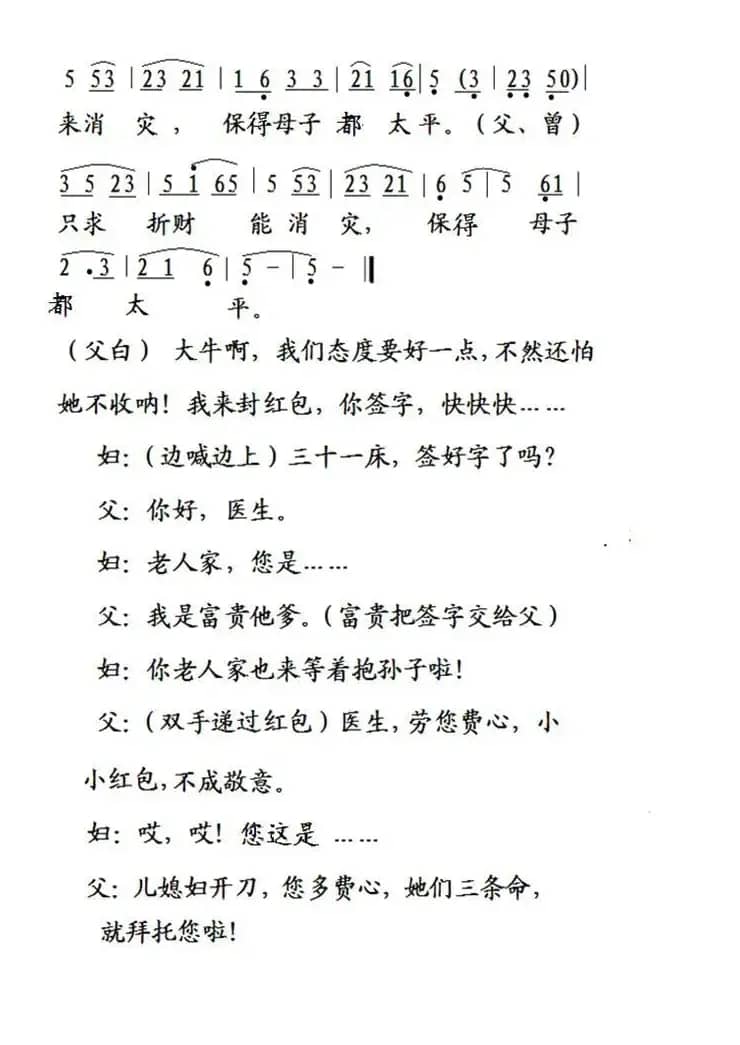 5 53 | 23 21 | 1 6 3 3 | 21 16 | 5 (3 | 23 50) |
来消 灾 ， 保得母子 都 太 平。（父、曾）
3 5 23 | 5 1 65 | 5 53 | 23 21 | 6 5 | 5 61 |
只求 折财 能 消 灾， 保得 母子
2 •3 | 2 1 6 | 5 – | 5 – ‖
都 太 平。
（父白） 大牛啊，我们态度要好一点，不然还怕
她不收呐！我来封红包，你签字，快快快……
妇：（边喊边上）三十一床，签好字了吗？
父：你好，医生。
妇：老人家，您是……
父：我是富贵他爹。（富贵把签字交给父）
妇：你老人家也来等着抱孙子啦！
父：（双手递过红包）医生，劳您费心，小
小红包，不成敬意。
妇：哎，哎！您这是 ……
父：儿媳妇开刀，您多费心，她们三条命，
就拜托您啦！